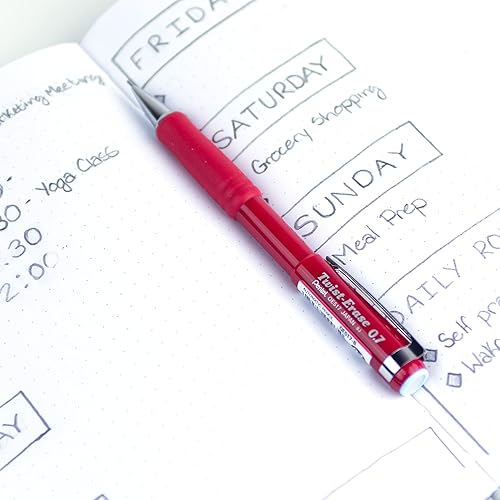 Marketing Meeting
Yoga Class
30
2:00
AY
FRIDAY
SATURDAY
Grocery Shopping
SUNDAY
Meal Prep
DAILY RO
Self
Twist-Erase 0.7
Pentel QE517 JAPAN